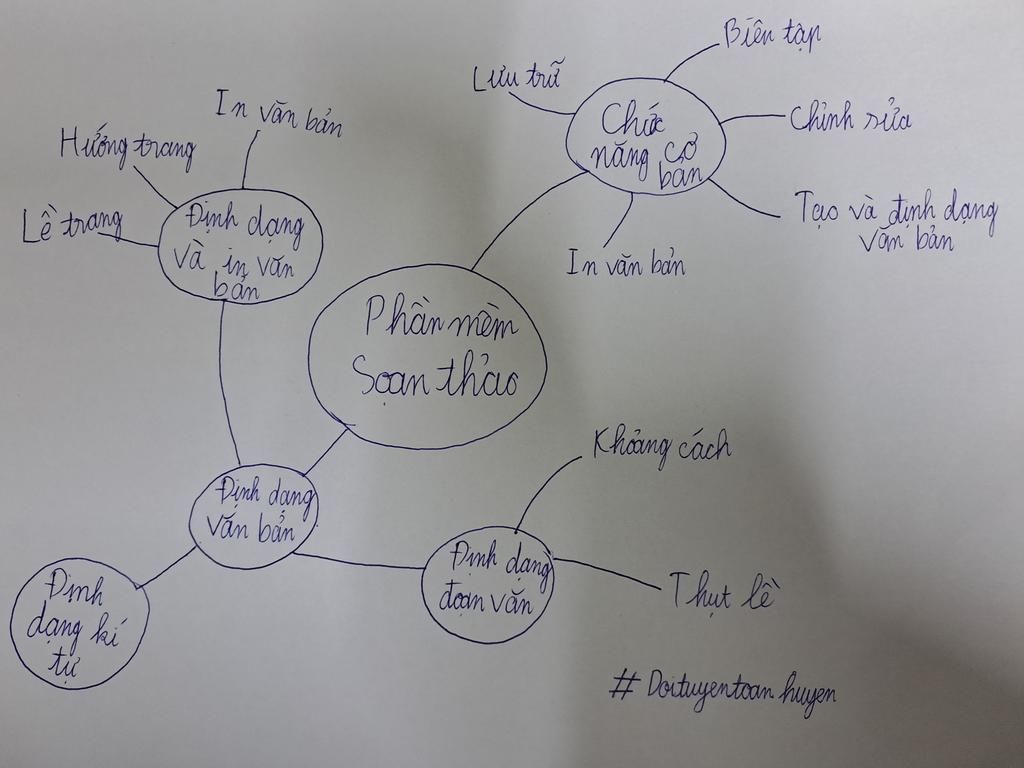 Biên tập
Lưu trữ
Chức
năng cơ
bản
Chỉnh sửa
Tạo và định dạng
văn bản
In văn bản
In văn bản
Hướng trang
Lề trang
Định dạng
và in văn
bản
Phần mềm
Soạn thảo
Định dạng
văn bản
Định
dạng kí
tự
Định dạng
đoạn văn
Khoảng cách
Thụt lề
# Doituyentoanhuyen